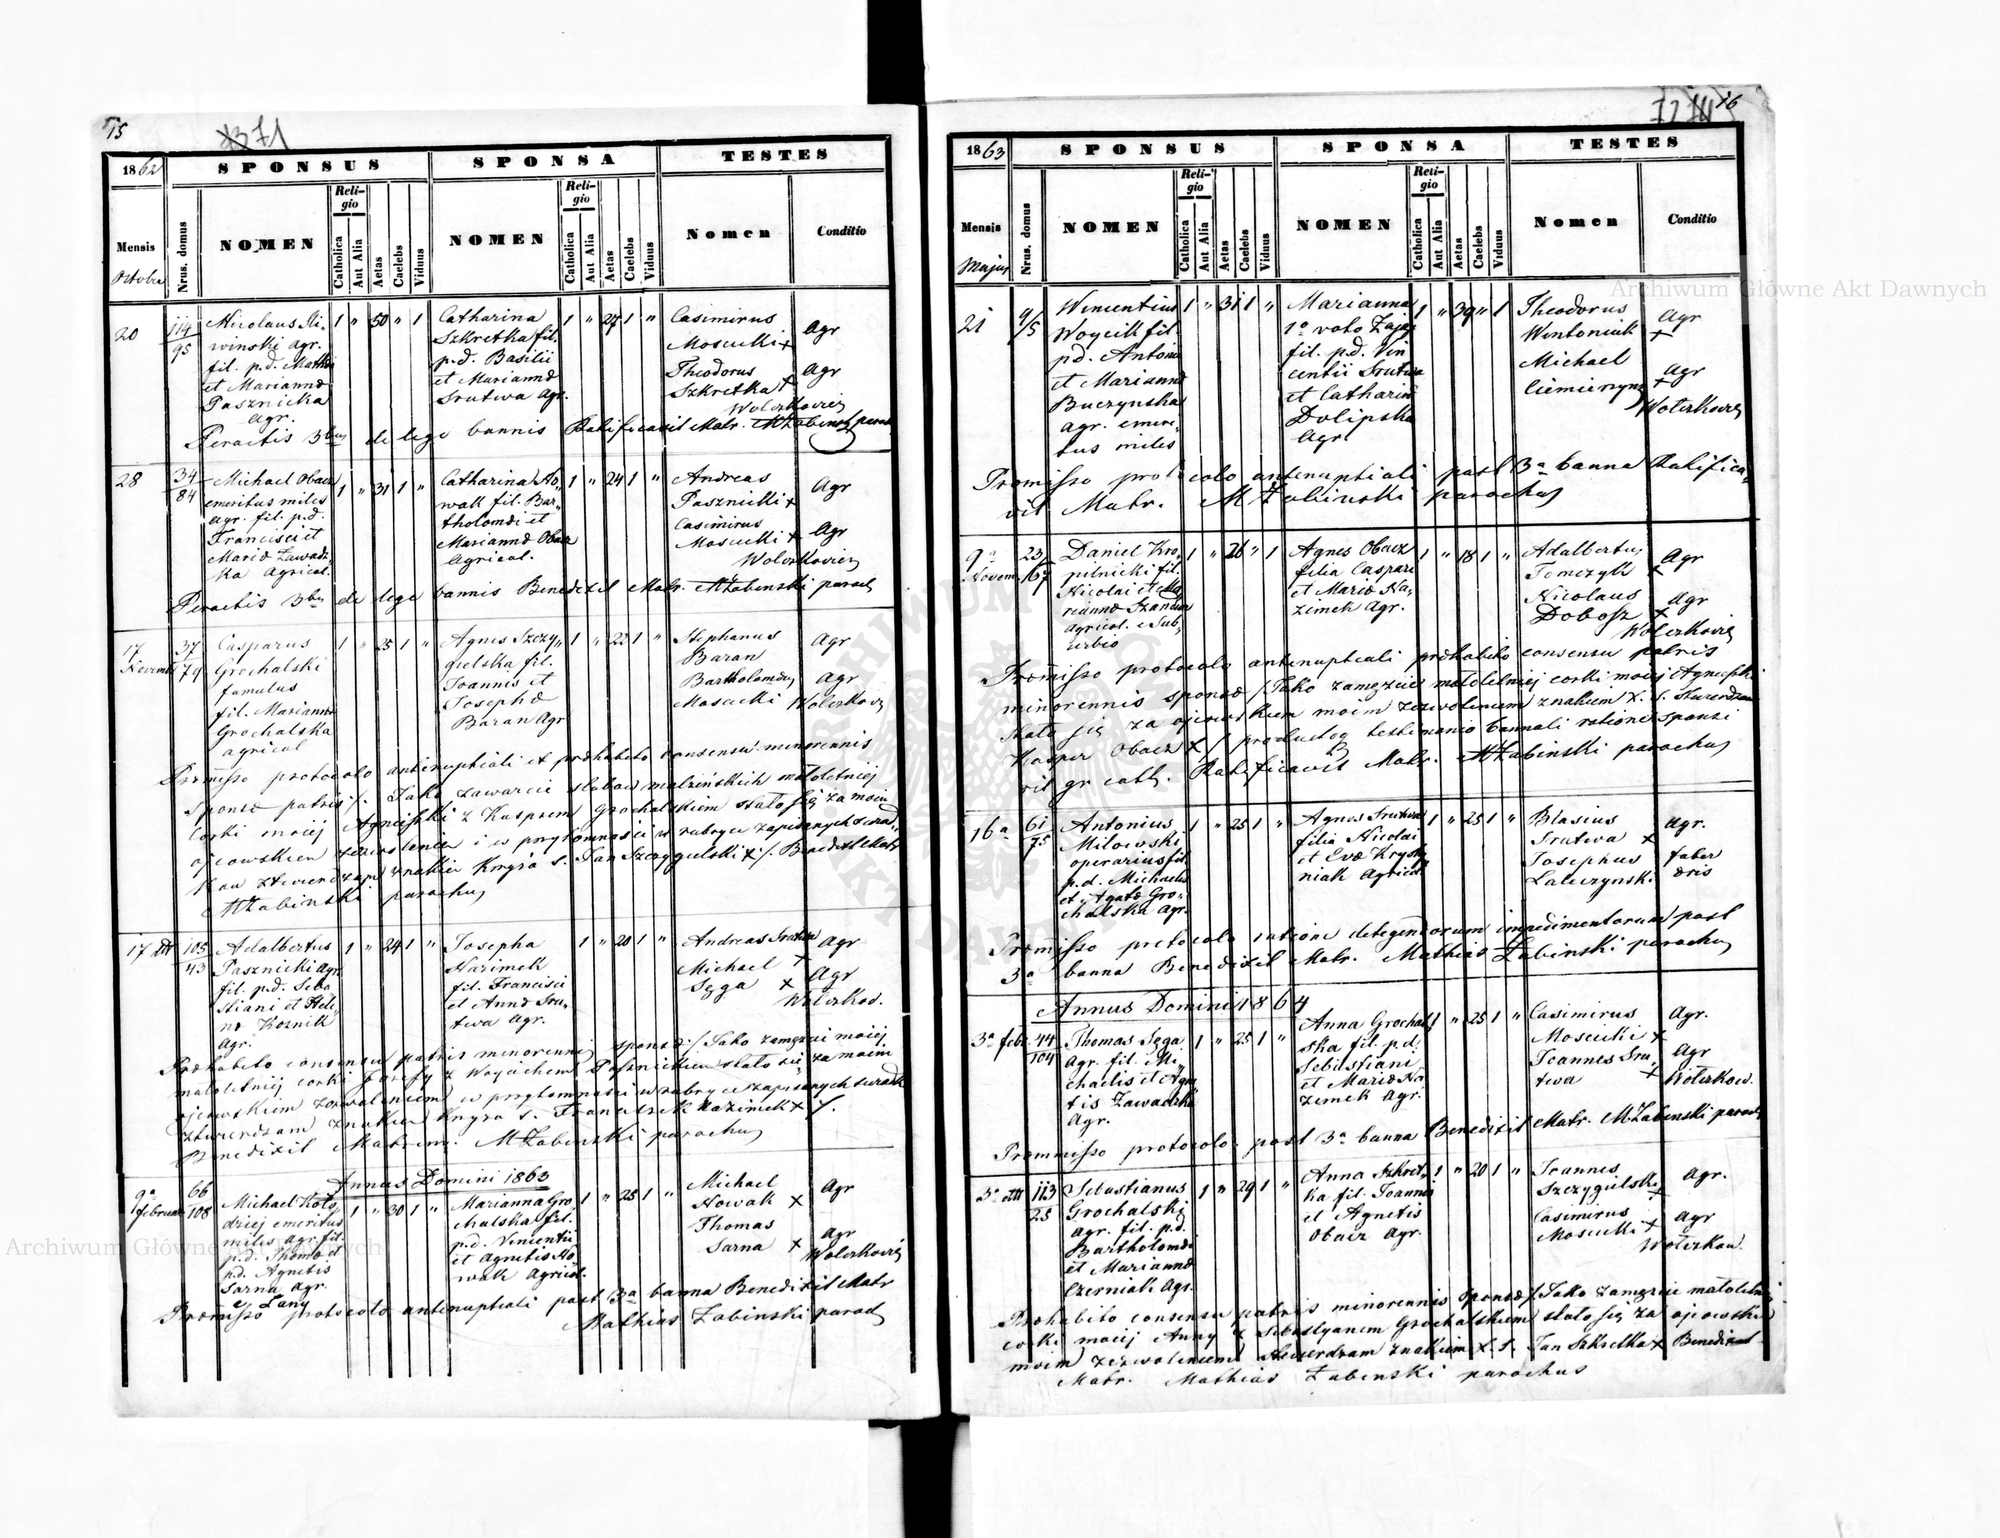 15
371
1862
SPONSUS
SPONSA
TESTES
Mensis
Octobr
Nrus. domus
NOMEN
Religio
Catholica
Aut Alia
Aetas
Caelebs
Viduus
NOMEN
Religio
Catholica
Aut Alia
Aetas
Caelebs
Viduus
Nomen
Conditio
20
114
95
Nicolaus Mi-
winski agr.
fil. p.d. Mathei
et Mariannæ
Pasznicka
agr.
1 " 50 " 1
Catharina
Szkretka fil.
p.d. Basilii
et Mariannæ
Srutwa Agr.
1 " 27 1 "
Casimirus
Mosucki +
Theodorus
Szkretka +
Agr
Agr
Wolczkoviez
Peractis 3bus de lege bannis Ratificavit Matr. MZabinski paroch
28
34
84
Michael Obacz
emeritus miles
agr. fil. p.d.
Francisci et
Mariæ Zawadz
ka Agricol.
1 " 31 1 "
Catharina No-
wak fil. Bar-
tholomæi et
Mariannæ Obacz
Agricol.
1 " 24 1 "
Andreas
Pasznicki +
Casimirus
Mosucki +
Agr
Agr
Wolczkoviez
Peractis 3bus de lege bannis Benedixit Matr. MZabinski paroch
17
Novembr
37
79
Casparus
Grochalski
famulus
fil. Mariannæ
Grochalska
agricol
1 " 25 1 "
Agnes Szczy-
gielska fil.
Joannis et
Josephæ
Baran Agr
1 " 22 1 "
Stephanus
Baran
Bartholomæus
Mosucki
Agr
Agr
Wolczkov
Præmisso protocolo antenuptiali et præhabito consensu minorennis
Sponsæ patris /. Jako zawarcie slubow malzenskich maloletniej
corki moiej Agnieszki z Kasprem Grochalskiem stało się za moim
ojcowskiem zezwoleniem i w przytomności w rubryce zapisanych swiad-
kow ztwierdzam znakiem Krzyża s. Jan Szczygielski + /. Benedixit Matr
MZabinski parochus
17 dtt
105
43
Adalbertus
Pasznicki Agr.
fil. p.d. Seba
stiani et Hele-
næ Koznik
Agr.
1 " 24 1 "
Josepha
Nazimek
fil. Francisci
et Annæ Sru-
twa Agr.
1 " 20 1 "
Andreas Srutwa
+
Michael
Sęga +
Agr
Agr
Wolczkov.
Præhabito consensu patris minorennis sponsæ /. Jako zamęzcie moiej
maloletniej corki Jozefy z Woyciechem Pasznickiem stało się za moim
ojcowskiem zezwoleniem w przytomności w rubryce zapisanych swiadk
ztwierdzam znakiem Krzyża s. Franciszek Nazimek + /.
Benedixit Matrim. MZabinski parochus
Annus Domini 1863
9a
februar
66
108
Michael Koło-
dziej emeritus
miles agr. fil.
p.d. Thomæ et
p.d. Agnetis
Sarna agr.
e Lany
1 " 30 1 "
Marianna Gro
chalska fil.
p.d. Vincentii
et Agnetis No
wak Agricol.
1 " 25 1 "
Michael
Nowak +
Thomas
Sarna +
Agr
Agr
Wolczkoviez
Præmisso protocolo antenuptiali post 3a banna Benedixit Matr
Mathias Zabinski paroch
16
1863
SPONSUS
SPONSA
TESTES
Mensis
Majus
Nrus. domus
NOMEN
Religio
Catholica
Aut Alia
Aetas
Caelebs
Viduus
NOMEN
Religio
Catholica
Aut Alia
Aetas
Caelebs
Viduus
Nomen
Conditio
21
9/5
Wincentius
Woycik fil.
p.d. Antonii
et Mariannæ
Buczynska
agr. emeri-
tus miles
1 " 31 1 "
Marianna
1o voto Zając
fil. p.d. Vin
centii Srutwa
et Catharinæ
Dolipska
Agr
1 " 39 " 1
Theodorus
Wintoniak
Michael
Ciemierzyns
Agr
+
Agr
+
Wolczkoviez
Præmisso protocolo antenuptiali post 3a banna Ratifica-
vit Matr. MZabinski parochus
9a
Novem
23
67
Daniel Kro-
pilnicki fil.
Nicolai et Ma
riannæ Szandera
Agricol. e Sub-
urbio
1 " 26 " 1
Agnes Obacz
filia Caspari
et Mariæ Na-
zimek Agr.
1 " 18 1 "
Adalbertus
Tomczyk
Nicolaus
Dobosz +
Agr
+
Agr
Wolczkoviez
Præmisso protocolo antenuptiali præhabito consensu patris
minorennis sponsæ /. Jako zamęzcie maloletniej corki moiej Agnieszki
stało się za ojcowskiem moim zezwoleniem znakiem X. S. stwierdzam
Kasper Obacz + / producto testimonio bannali ratione Sponsi
rit. gr. cath. Ratificavit Matr. MZabinski parochus
16a
61
75
Antonius
Milowski
operarius fil.
p.d. Michaelis
et Agatæ Gro-
chalska Agr.
1 " 25 1 "
Agnes Srutwa
filia Nicolai
et Evæ Krysty
niak Agricol
1 " 25 1 "
Blasius
Srutwa +
Josephus
Laluzynski
Agr.
faber
æris
Præmisso protocolo ratione detegendorum impedimentorum post
3a banna Benedixit Matr. Mathias Zabinski parochus
Annus Domini 1864
3a febr.
44
104
Thomas Sęga
Agr. fil. Mi-
chaelis et Agne
tis Zawadzka
Agr.
1 " 25 1 "
Anna Grochal
ska fil. p.d.
Sebastiani
et Mariæ Na
zimek Agr.
1 " 25 1 "
Casimirus
Mosucki +
Joannes Sru-
twa +
Agr.
Agr
Wolczkow.
Præmisso protocolo post 3a banna Benedixit Matr. MZabinski paroch
3a dtt
113
25
Sebastianus
Grochalski
agr. fil. p.d.
Bartholomæi
et Mariannæ
Czerniak Agr.
1 " 29 1 "
Anna Szkret-
ka fil. Joannis
et Agnetis
Obacz Agr.
1 " 20 1 "
Joannes
Szczygielski
+
Casimirus
Mosucki +
Agr.
Agr
Wolczkow.
Præhabito consensu patris minorennis sponsæ /. Jako zamęzcie maloletniej
corki moiej Anny z Sebastyanem Grochalskiem stało się za ojcowskiem
moim zezwoleniem stwierdzam znakiem X. S. Jan Szkretka + Benedixit
Matr. Mathias Zabinski parochus
Archiwum Główne Akt Dawnych
Archiwum Główne Akt Dawnych
ARCHIWUM GŁÓWNE AKT DAWNYCH